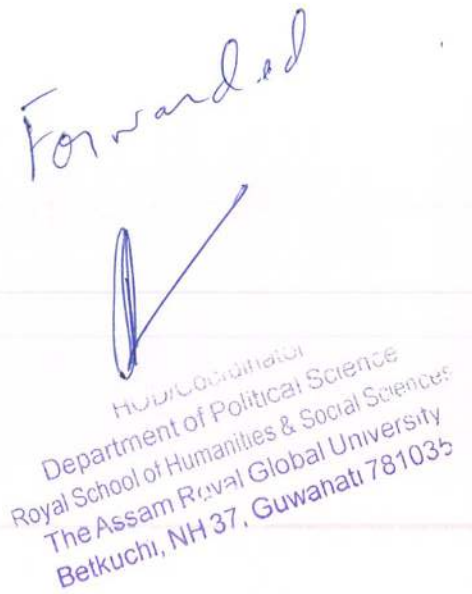 Forwarded
HOD/Coordinator
Department of Political Science
Royal School of Humanities & Social Sciences
The Assam Royal Global University
Betkuchi, NH 37, Guwahati 781035